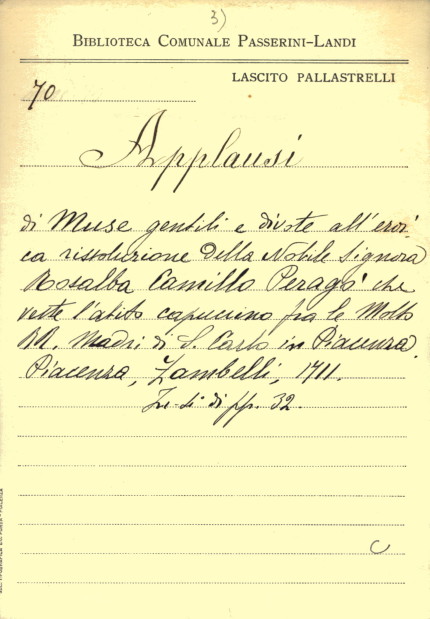 3)
BIBLIOTECA COMUNALE PASSERINI-LANDI
LASCITO PALLASTRELLI
70
Applausi
di Muse gentili e divote all'eroi-
ca rissoluzione della Nobile Signora
Rosalba Camilla Peragò che
veste l'abito capuccino fra le Molto
RR. Madri di S. Carlo in Piacenza.
Piacenza, Zambelli, 1711.
In-4° di pp. 32.
C